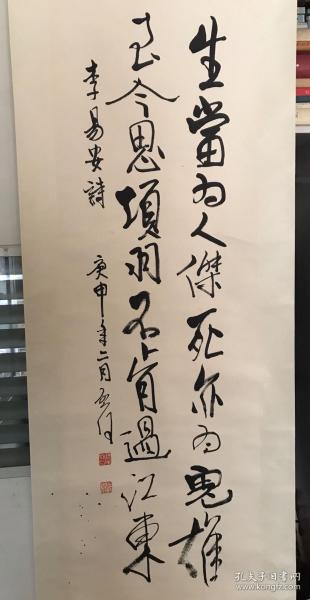 生當為人傑死亦為鬼雄
至今思項羽不肯過江東
李易安詩
庚申年二月
孔夫子旧书网